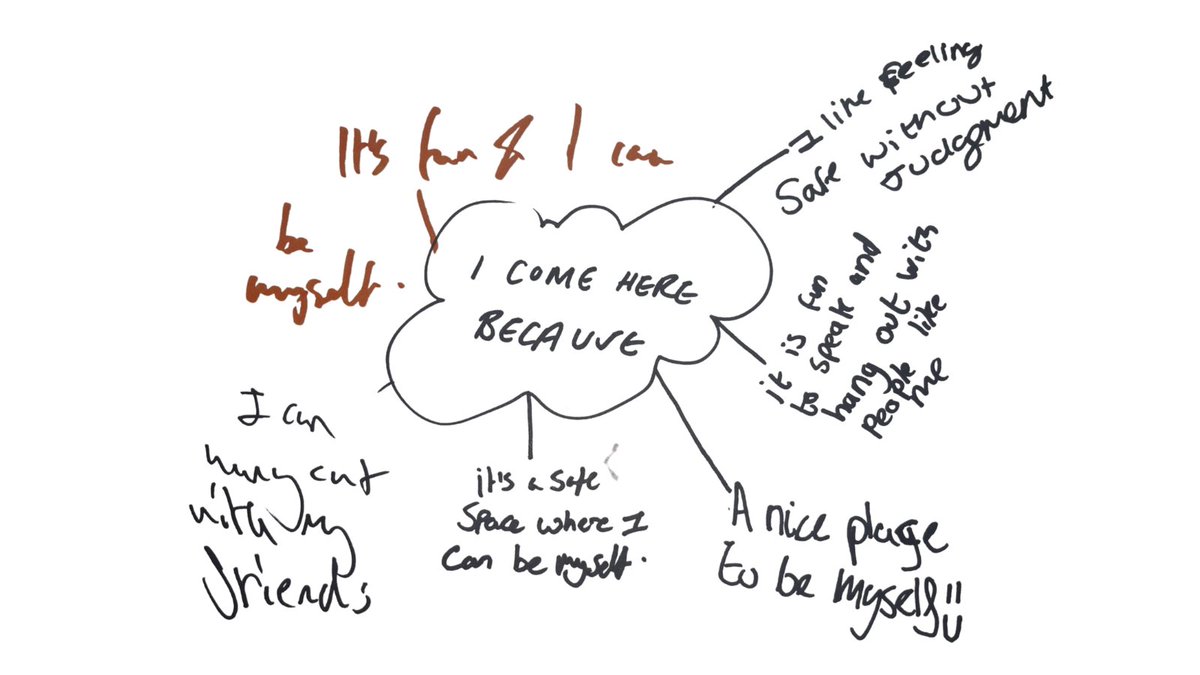 I COME HERE
BECAUSE
It's fun & I can
be
myself.
I like feeling
Safe without
Judgment
it is fun
to speak and
hang out with
people like
me
A nice plage
to be myself
it's a safe
Space where I
Can be myself.
I can
hang out
with my
friends